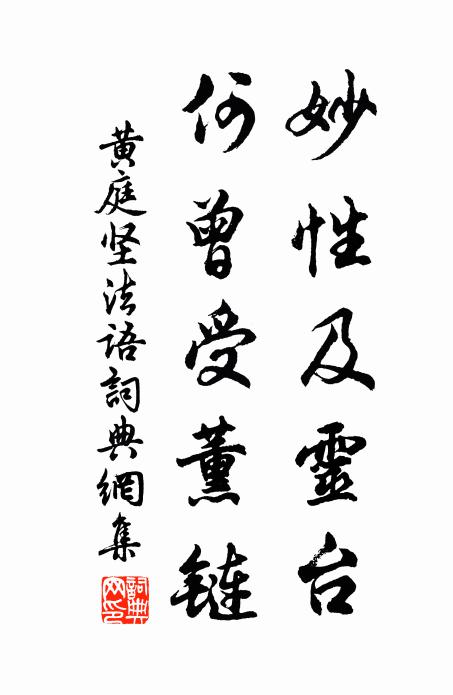 妙性及靈台
何曾受薰鏈
黄庭坚法语詞典網集
詞典网印